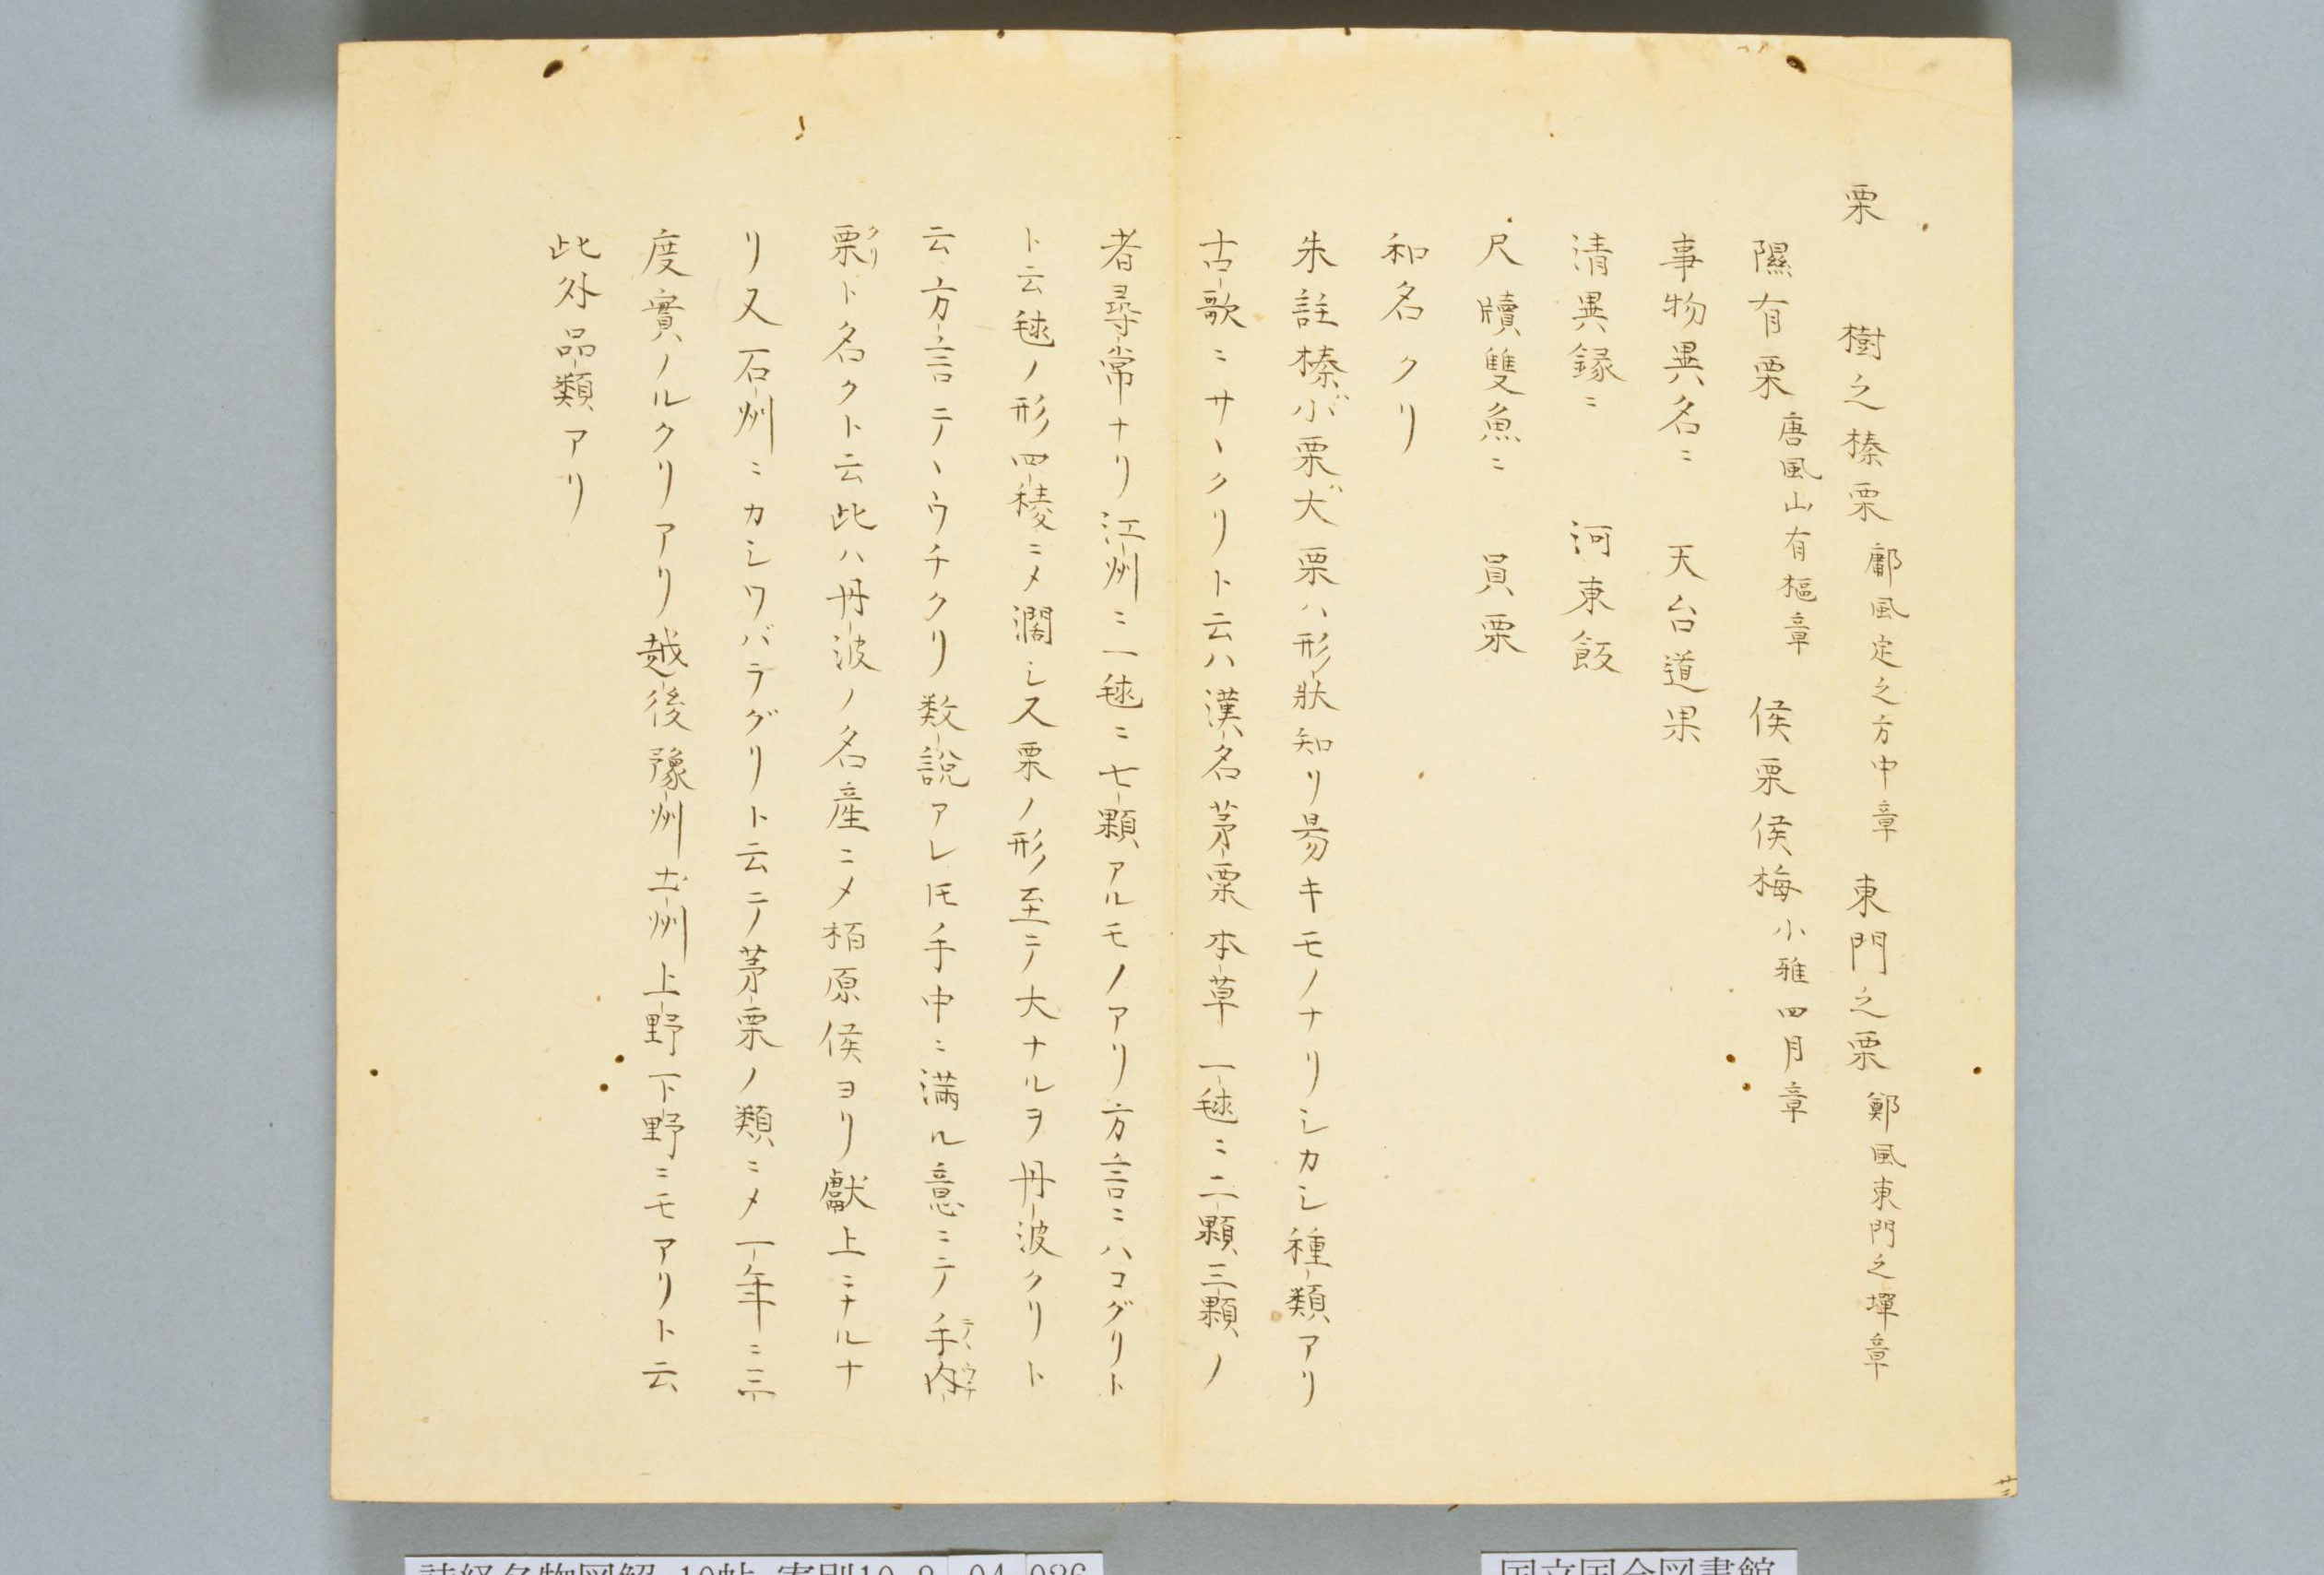 栗　樹之榛栗 鄘風定之方中章 東門之栗 鄭風東門之墠章
隰有栗 唐風山有樞章 侯栗侯梅 小雅四月章
事物異名ニ　天台道果
清異録ニ　河東飯
尺牘雙魚ニ　員栗
和名クリ
朱註榛小栗大栗ハ形狀知リ易キモノナリシカシ種類アリ
古歌ニサヽクリト云ハ漢名茅栗本草一毬ニ二顆三顆ノ
者尋常ナリ江州ニ一毬ニ七顆アルモノアリ方言ニハコグリト
ト云毬ノ形四稜ニメ濶シス栗ノ形至テ大ナルヲ丹波クリト
云方言テヽウチクリ数説アレ𪜈手中ニ満ル意ニテ手内
栗ト名クト云此ハ丹波ノ名産ニメ栢原侯ヨリ獻上ニナルナ
リ又石州ニカシワバラグリト云テ茅栗ノ類ニメ一年ニ三
度實ノルクリアリ越後豫州土州上野下野ニモアリト云
此外品類アリ
廿三
国立国会図書館